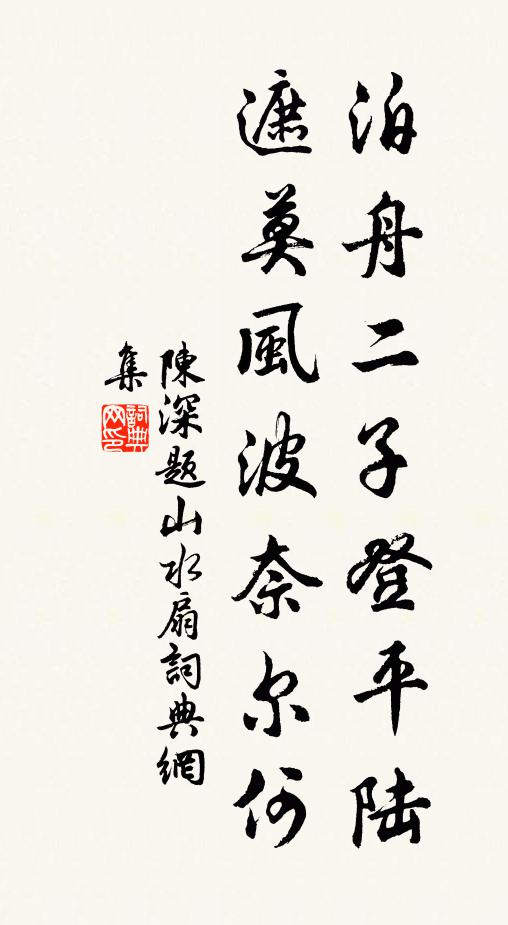 泊舟二子登平陆
遮莫風波奈尔何
陳深题山水扇詞典網
集
詞典
网印